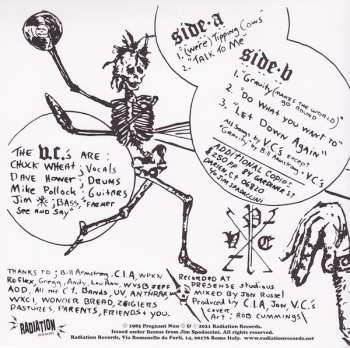 side-a
1. "(We're) Tipping Cows"
2. "Talk To Me"
side-b
1. "Gravity (makes the world) go round
2. "Do What you Want To"
3. "Let Down Again"
All Songs by V.C.'s except
"Gravity" by Bill Arms., V.C.'s
ADDITIONAL COPIES
$2.50 PP
DARIEN, CT 06820
JIM SPADACCINI
THE V.C.'s ARE:
CHUCK WHEAT, Vocals
DAVE HOWER, DRUMS
Mike Pollock, Guitars
Jim, BASS, "FARMER
SEE and Say"
V
P
V
C
THANKS TO: Bill Armstrong, C.I.A, WPKN
Reflex, Gregg, Andy, Lou Dav, WVSB JEFF
AOD, All my CT. Bands, UV, ANTHRAX
WXCI, WONDER BREAD, ZEIGLERS
PASTURES, PARENTS, FRIENDS + YOU.
RECORDED AT
PRESENSE studios
MIXED BY Jon Russel
Produced by C.I.A, Jon, V.C.'s
cover
Art: ROB CUMMINGS
RADIATION
℗ 1985 Pregnant Nun © & ℗ 2021 Radiation Records.
Issued under license from Jim Spadaccini. All rights reserved.
Radiation Records, Via Romanello da Forlì, 14, 00176 Rome Italy. www.radiationrecords.net